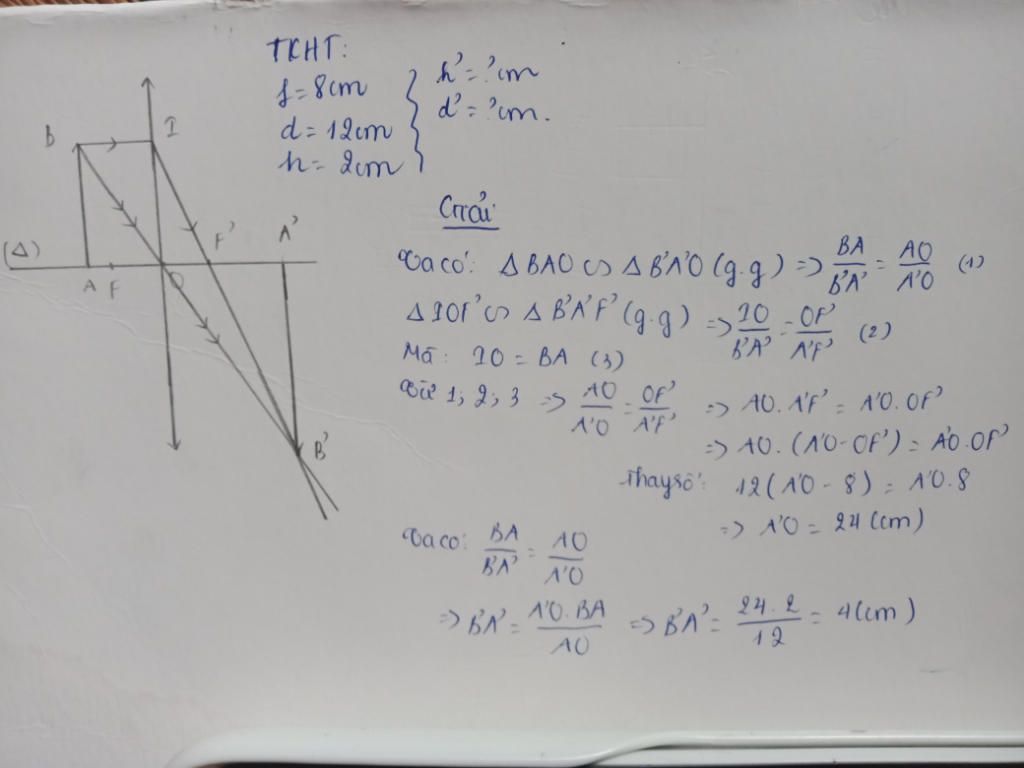 TKHT:
f = 8cm
d = 12cm
h = 2cm
h' = ? cm
d' = ? cm.
B
I
(Δ)
A
F
O
F'
A'
B'
Giải
Ta có: Δ BAO ∽ Δ B'A'O (g.g) => BA/B'A' = AO/A'O (1)
Δ IOF' ∽ Δ B'A'F' (g.g) => IO/B'A' = OF'/A'F' (2)
Mà: IO = BA (3)
Từ 1; 2; 3 => AO/A'O = OF'/A'F' => AO. A'F' = A'O. OF'
=> AO. (A'O - OF') = A'O. OF'
Thay số: 12(A'O - 8) = A'O. 8
=> A'O = 24 (cm)
Ta có: BA/B'A' = AO/A'O
=> B'A' = A'O. BA/AO => B'A' = 24. 2/12 = 4 (cm)